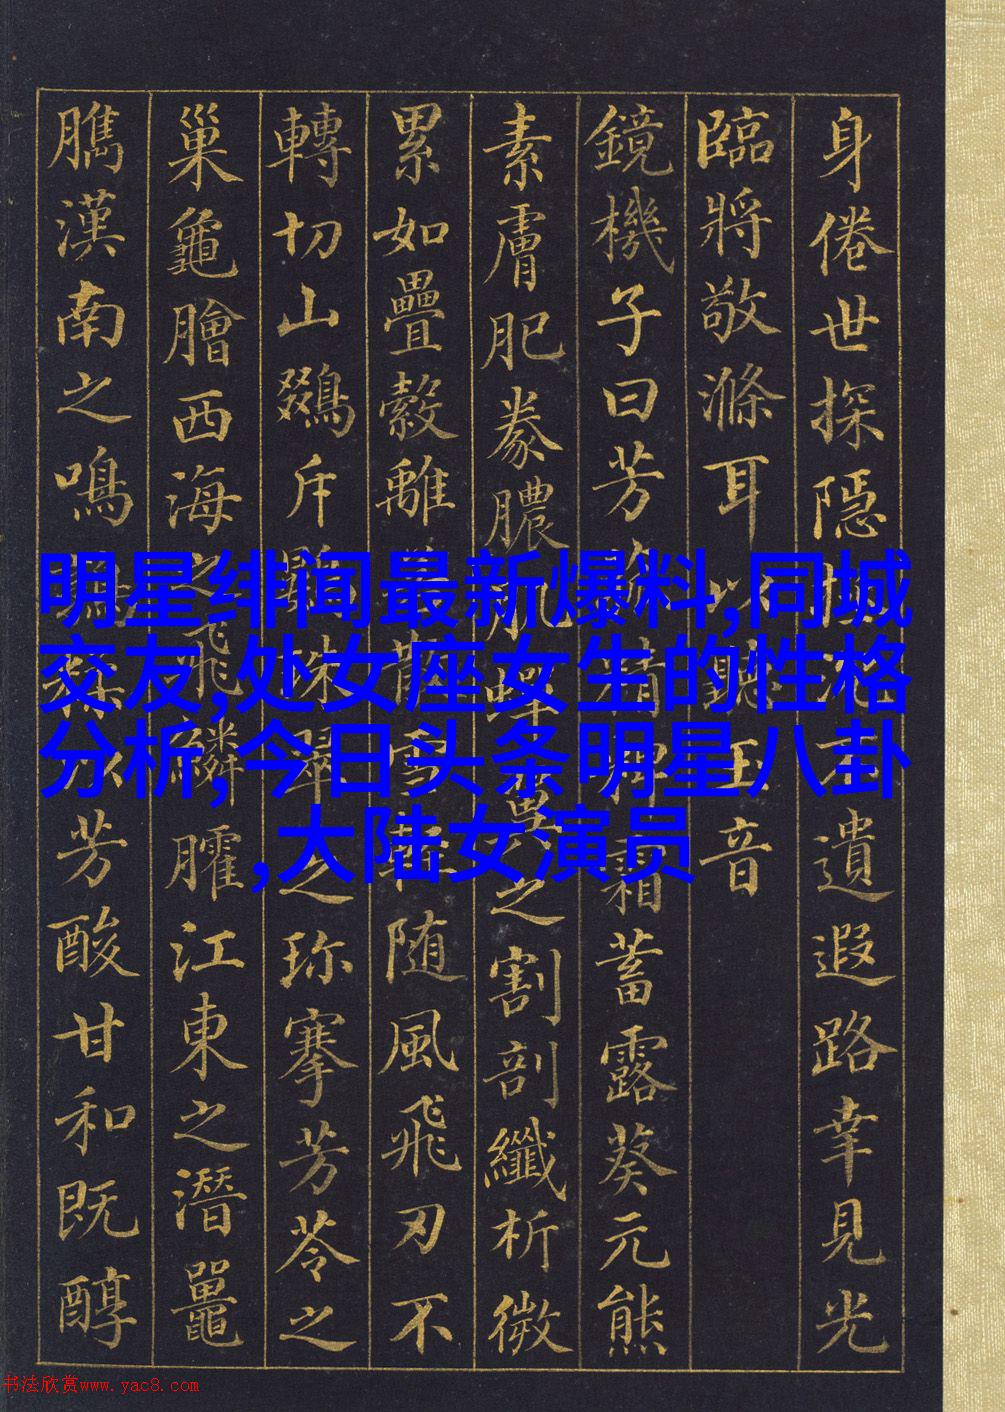 身倦世探隱拯沈不遺遐路幸見光
臨將敬滌耳以聽玉音
鏡機子曰芳精霜蓄露葵元熊
素膚肥豢膿肌蟬翼之割剖纖析微
累如疊縠離散雪輕随風飛刃不
轉切山鵽斥珠翠之珍搴芳苓之
巢龜膾西海之飛鱗臛江東之潛鼉
臇漢南之鳴以芳酸甘和既醇
明星绯闻最新爆料,同城
交友,处女座女生的性格
分析,今日头条明星八卦
,大陆女演员
书法欣赏www.yac8.com